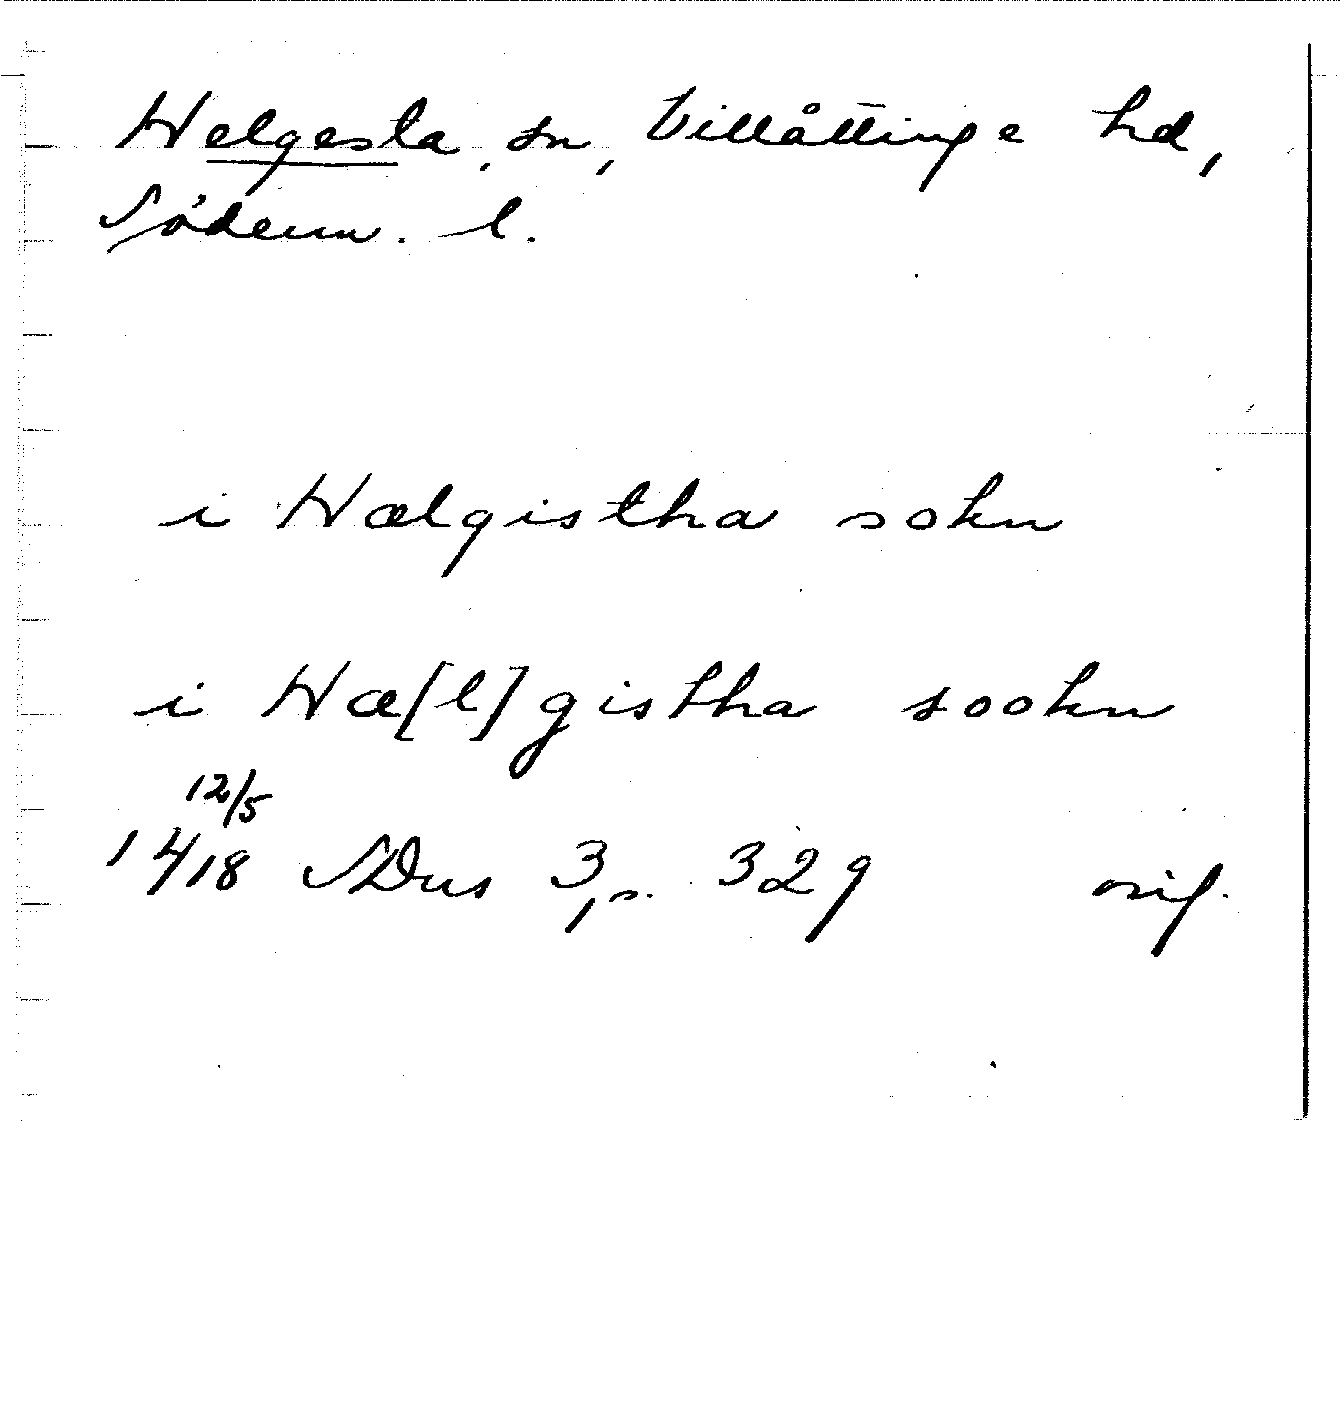 Helgesta, sn, Villåttinge hd,
Söderm. l.
i Hælgistha sokn
i Hæ[l]gistha sookn
12/5
1418 SDns 3, s. 329 orig.